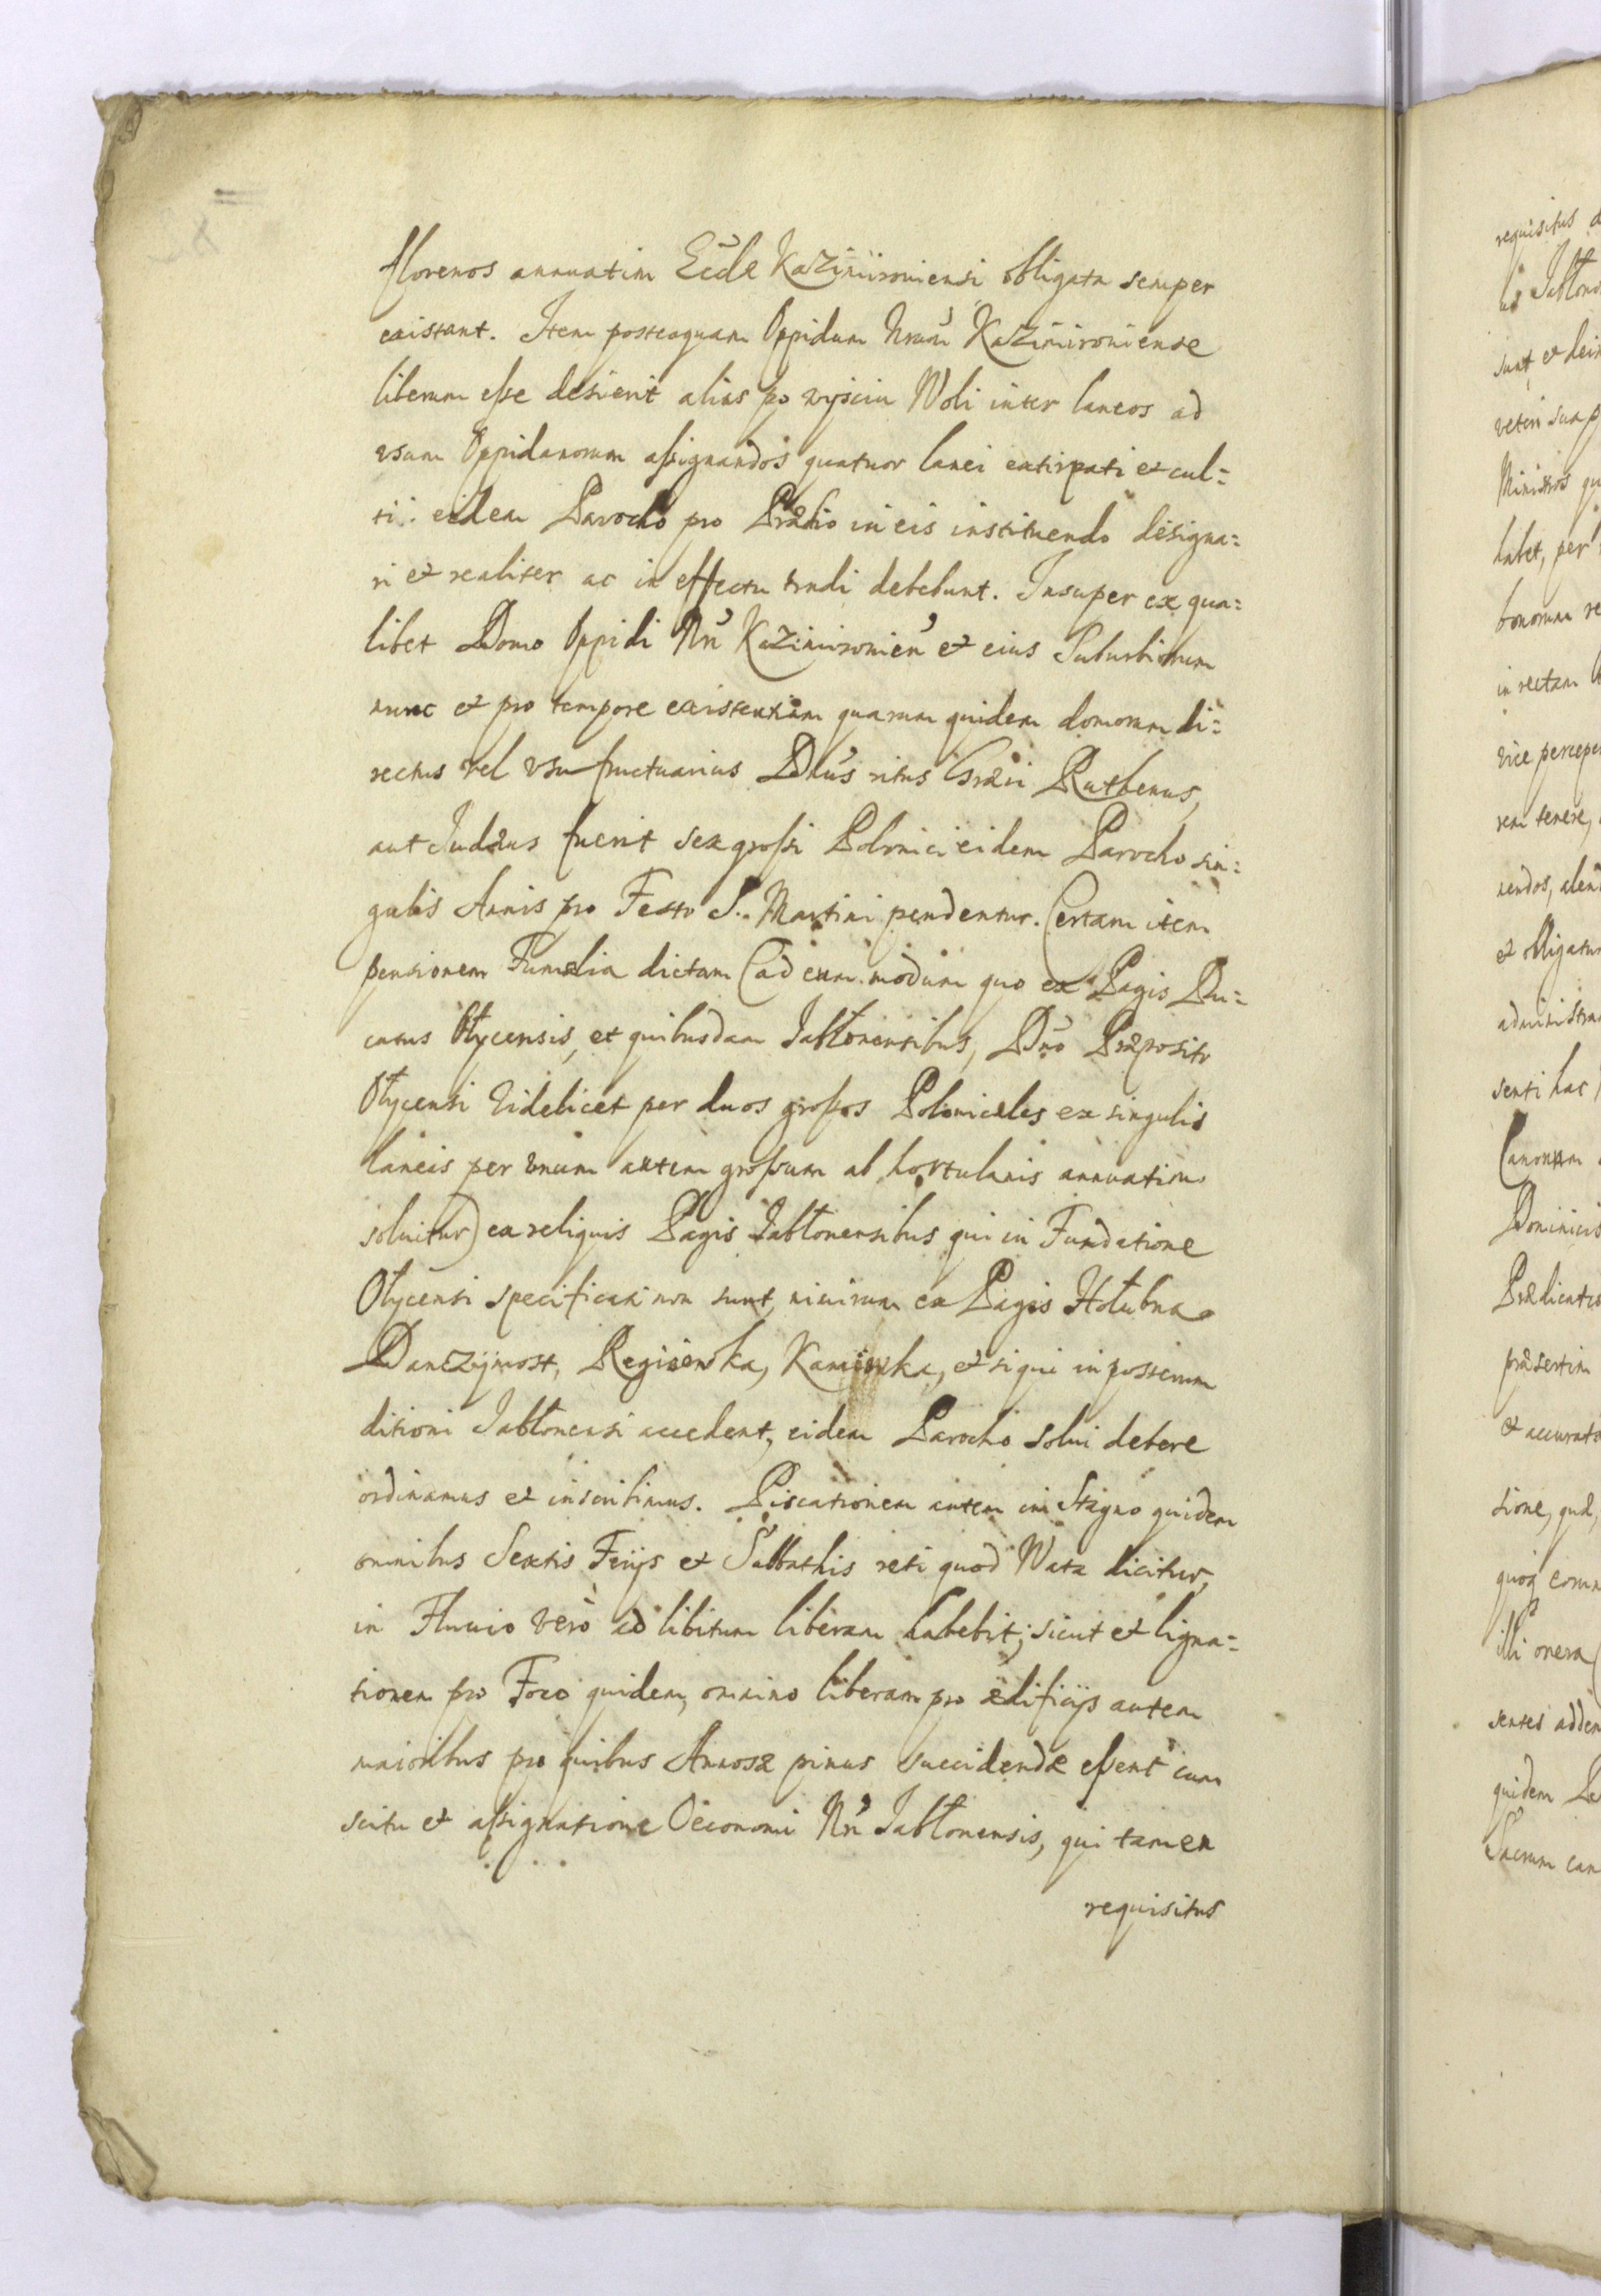 florenos annuatim Eccłe Kazimiroviensi obligata semper
existant. Item posteaquam Oppidum Nrum Kazimiroviense
liberum esse desierit alias po wyściu Woli inter laneos ad
vsum Oppidanorum assignandos quatuor lanei extirpati et cul=
ti eidem Parocho pro Prædio in eis instituendo designa=
ri et realiter ac in effectu tradi debebunt. Insuper ex qua=
libet Domo Oppidi Nri Kazimirovien et eius Suburbiorum
nunc et pro tempore existentium quarum quidem domorum di=
rectus vel vsufructuarius Dnus ritus Græci Ruthenus,
aut Judæus fuerit sex grossi Polonici eidem Parocho sin=
gulis Annis pro Festo S. Martini pendentur. Certam item
pensionem Fumalia dictam (ad eum modum quo ex Pagis Du=
catus Ołycensis, et quibusdam Jabłonensibus, Dno Præposito
Ołycensi Videlicet per duos grossos Polonicales ex singulis
laneis per vnum autem grossum ab hortulanis annuatim
soluitur) ex reliquis Pagis Jabłonensibus qui in Fundatione
Ołycensi specificati non sunt, nimirum ex Pagis Hołubna
Danczymost, Kamionka, et siqui in posterum
ditioni Jabłonensi accedent, eidem Parocho solui debere
ordinamus et inscribimus. Piscationem autem in Stagno quidem
omnibus Sextis Ferijs et Sabbathis reti quod Wata dicitur,
in Fluvio verò ad libitum liberam habebit; sicut et ligna=
tionem pro Foco quidem, omnino liberam pro ædificijs autem
maioribus pro quibus Annosæ pinus succidendæ essent cum
scitu et assignatione Oeconomi Nri Jabłonensis, qui tamen
requisitus
requisitus
Jabłono
sunt et dein
veteri sua p
Ministros qu
habet, per
bonorum re
in rectam
vice percepe
rem tenere,
et obligatur
administra
senti hac
Canonum
Dominicis
Prædicatio
præsertim
et accurata
sione, quæ,
illi onera
sentes adden
quidem
Sacrum can